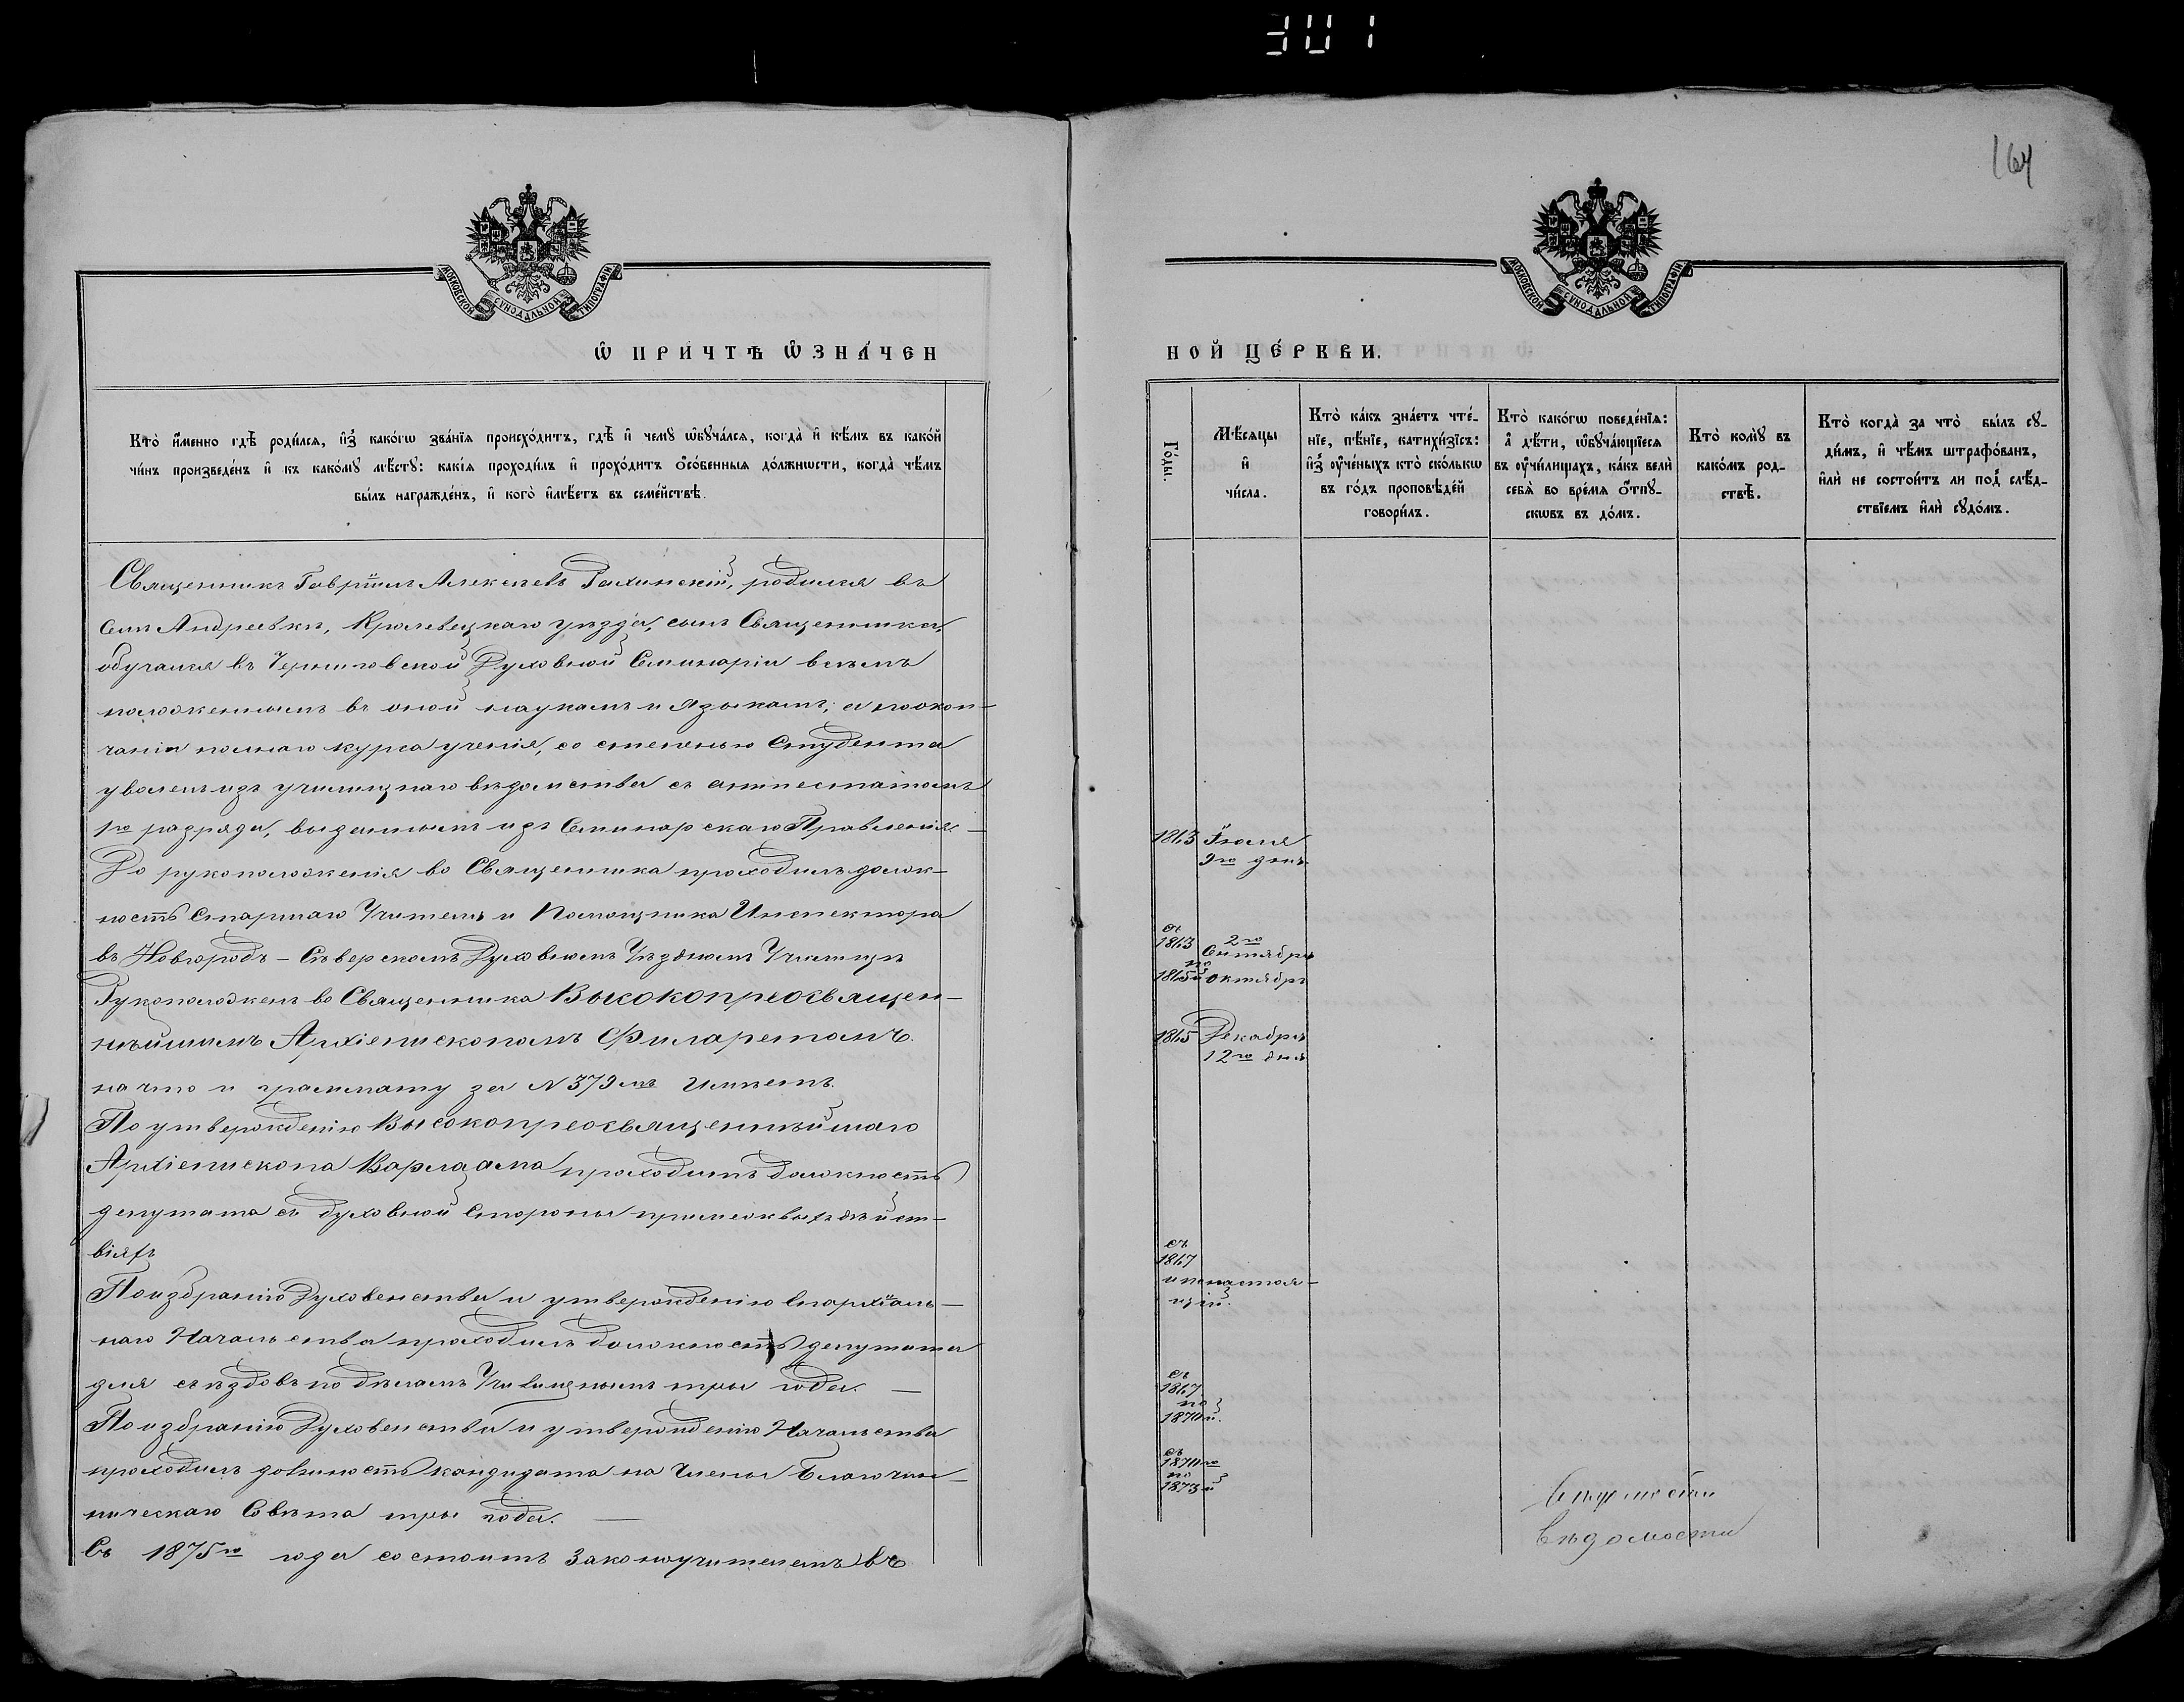 301
164
МОСКОВСКОЙ СѴНОДАЛЬНОЙ ТИПОГРАФІИ
МОСКОВСКОЙ СѴНОДАЛЬНОЙ ТИПОГРАФІИ
Ѡ ПРИ́ЧТѢ Ѡ҆ЗНА́ЧЕН
НОЙ ЦЕ́РКВИ.
Кто̀ и҆́менно гдѣ̀ роди́лся, и҆з̾ како́гѡ зва́нїя происхо́дитъ, гдѣ̀ и҆ чемꙋ̀ ѡ҆бꙋча́лся, когда̀ и҆ кѣ́мъ въ како́й
чи́нъ произведе́нъ и҆ къ како́мꙋ мѣ́стꙋ: какі́я проходи́лъ и҆ прохо́дитъ ѻ҆со́бенныя до́лжности, когда̀ чѣ́мъ
бы́лъ награжде́нъ, и҆ кого̀ и҆мѣ́етъ въ семе́йствѣ.
Го́ды.
Мѣ́сяцы
и҆
чи́сла.
Кто̀ ка́къ зна́етъ чте́-
нїе, пѣ́нїе, катихи́зїсъ:
и҆з̾ ᲂу҆че́ныхъ кто̀ ско́лькѡ
въ го́дъ проповѣ́дей
говори́лъ.
Кто̀ како́гѡ поведе́нїя:
а҆ дѣ́ти, ѡ҆бꙋча́ющїеся
въ ᲂу҆чи́лищахъ, ка́къ велѝ
себя̀ во вре́мя ѻ҆́тпꙋ-
скѡвъ въ до́мъ.
Кто̀ комꙋ̀ въ
како́мъ род-
ствѣ̀.
Кто̀ когда̀ за что̀ бы́лъ сꙋ-
ди́мъ, и҆ чѣ́мъ штрафо́ванъ,
и҆лѝ не состои́тъ ли под̾ слѣ́д-
ствїемъ и҆лѝ сꙋдо́мъ.
Священникъ Гавріилъ Алексѣевъ родился въ
Селѣ Андреевкѣ, Кролевецкаго уѣзда, сынъ Священника,
обучался въ Черниговской Духовной Семинаріи всѣмъ
положеннымъ въ оной наукамъ и языкамъ; а по окон-
чаніи полнаго курса ученія, со степенью Студента
уволенъ изъ училищнаго вѣдомства съ аттестатомъ
1го разряда, выданнымъ изъ Семинарскаго Правленія —
До рукоположенія во Священника проходилъ долж-
ность Старшаго Учителя и Помощника Инспектора
въ Новгородъ - Сѣверскомъ Духовномъ Уѣздномъ Училищѣ
Рукоположенъ во Священника Высокопреосвящен-
нѣйшимъ Архіепископомъ Филаретомъ.
на что и граммату за N 379мъ имѣетъ.
По утвержденію Высокопреосвященнѣйшаго
Архіепископа Варлаама проходитъ должность
депутата съ духовной Стороны при слѣдственныхъ дѣйст-
віяхъ
По избранію Духовенства и утвержденію Епархіаль-
наго Начальства проходилъ должность депутата
для съѣздовъ по дѣламъ Училищнымъ три года. —
По избранію Духовенства и утвержденію Начальства
проходилъ должность кандидата на Члены Благочин-
ническаго Совѣта три года. —
Съ 1875го года состоитъ Законоучителемъ въ
1863 Іюля
9го дня
съ
1863 2го
Сентября
по
1865й Октября
1865 Декабря
12го дня
съ
1867
и по настоя-
щій.
съ
1867
по
1870й.
съ
1870го
по
1873й
Вѣдомости